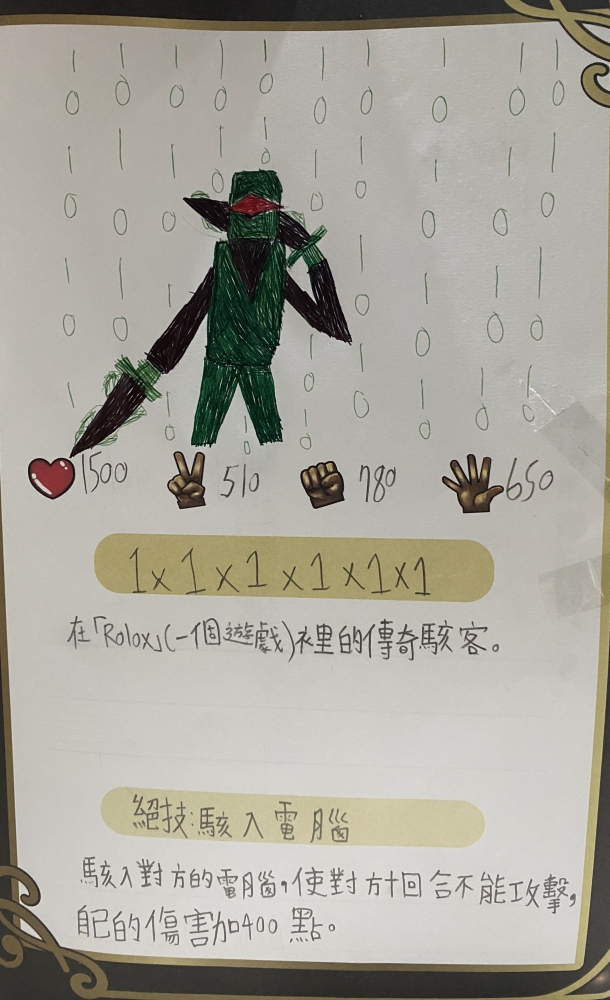 1500 510 780 650
1x1x1x1x1x1
在「Rolox」(一個遊戲)裡的傳奇駭客。
絕技:駭入電腦
駭入對方的電腦,使對方十回合不能攻擊,
自己的傷害加400點。